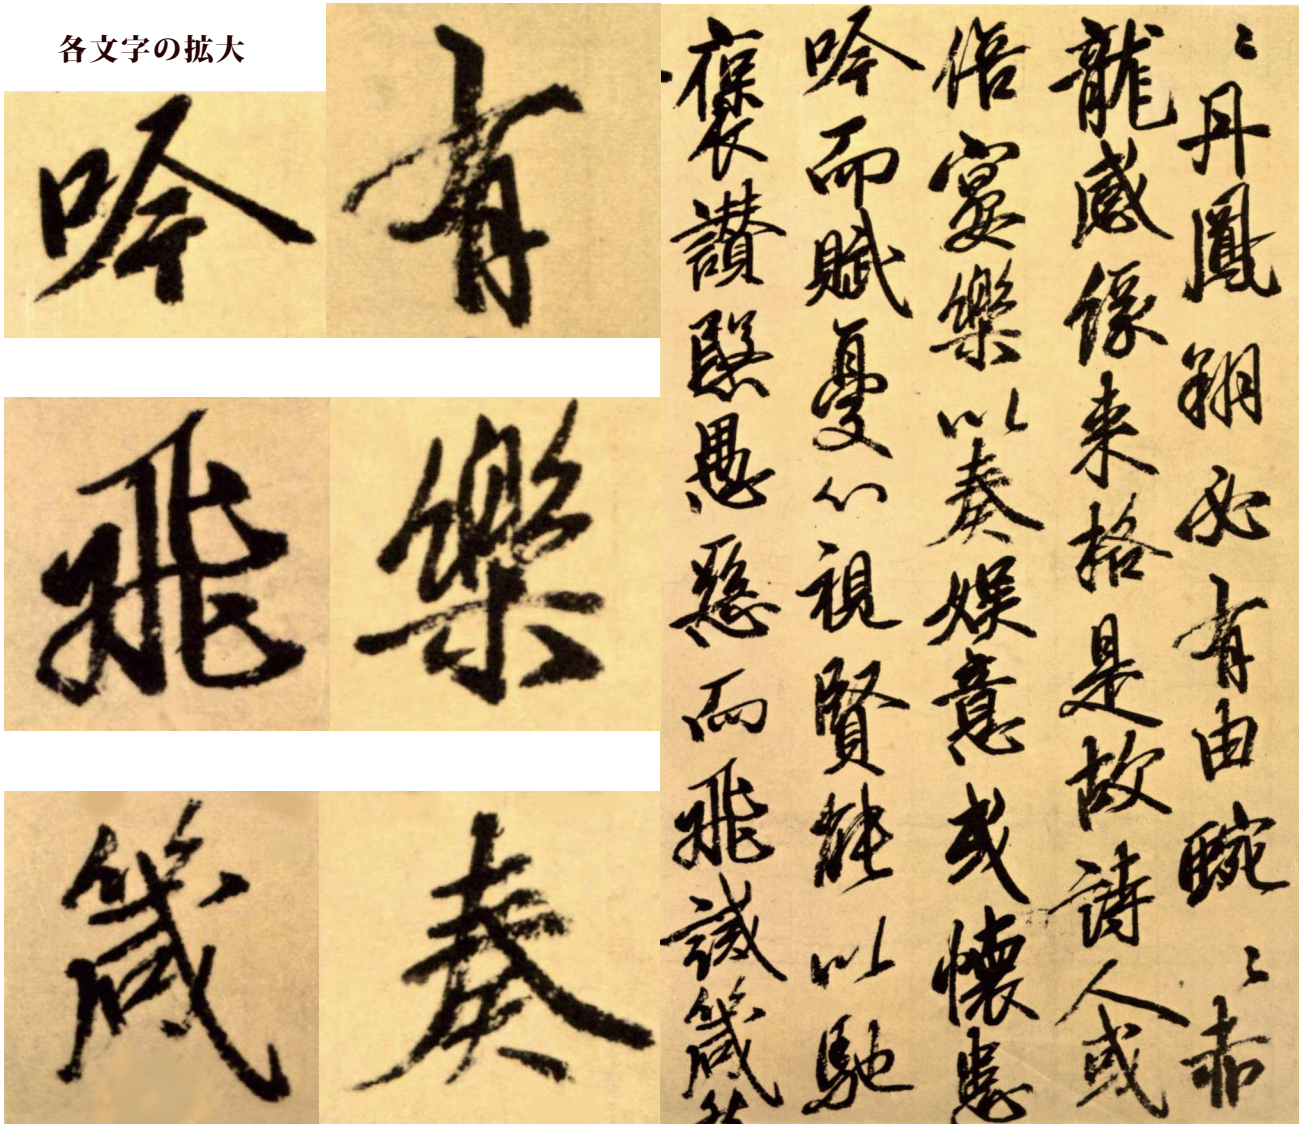 各文字の拡大
吟 有
飛 樂
箴 奏
〻丹鳳翔必有由畹〻赤
龍感像来格是故詩人或
倍宴樂以奏娯意或懷
吟而賦憂心視賢能以馳
褒讃愚而飛誡箴